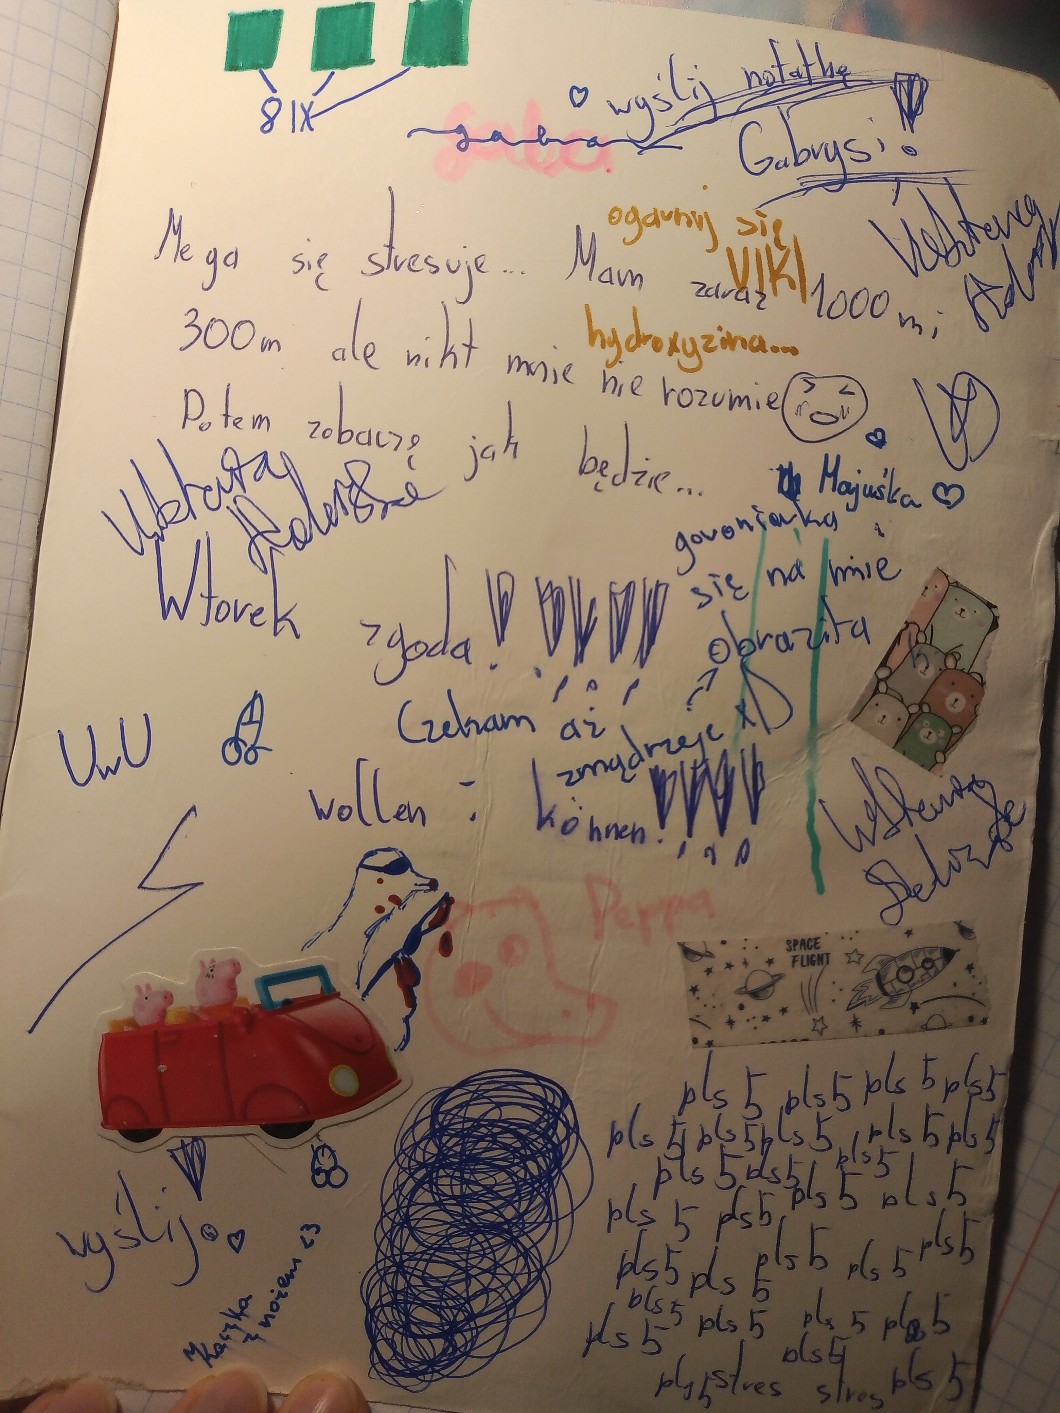 8 IX
gaba
wyślij notatkę
Gabrysi!
ogarnij się
VIKI
Mega się stresuje... Mam zaraz 1000 m i
hydroxyzina...
300m ale nikt mnie nie rozumie
Potem zobaczę jak będzie...
Majuśka
goroniarka
się na mnie
obraziła
Wtorek zgoda!!!!!
Czekam aż
zmądrzeje xD
UwU
wollen : können!!!!
Peppa
SPACE
FLIGHT
pls 5 pls 5 pls 5 pls 5
pls 5 pls 5 pls 5 pls 5 pls 5
pls 5 pls 5 pls 5
pls 5 pls 5 pls 5 pls 5
pls 5 pls 5 pls 5 pls 5 pls 5
pls 5 pls 5
pls 5 pls 5 pls 5 pls 5
pls 5 stres stres pls 5
wyślij!
Kaczka
z nożem <3